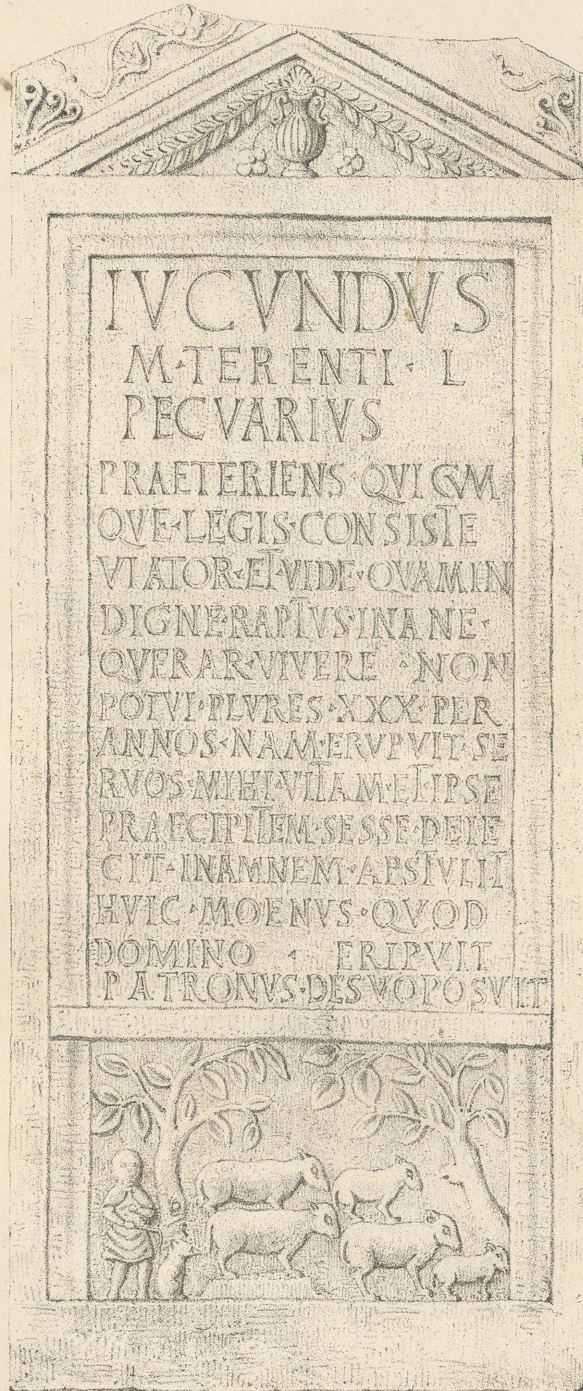 IVCVNDVS
M·TERENTI·L
PECVARIVS
PRAETERIENS·QVICVM
QVE·LEGIS·CONSISTE
VIATOR·ET·VIDE·QVAM·IN
DIGNE·RAPTVS·INANE·
QVERAR·VIVERE·NON
POTVI·PLVRES·XXX·PER
ANNOS·NAM·ERVPVIT·SE
RVOS·MIHI·VITAM·ET·IPSE
PRAECIPITEM·SESSE·DEIE
CIT·INAMNEM·APSTVLIT
HVIC·MOENVS·QVOD
DOMINO · ERIPVIT
PATRONVS·DE·SVO·POSVIT